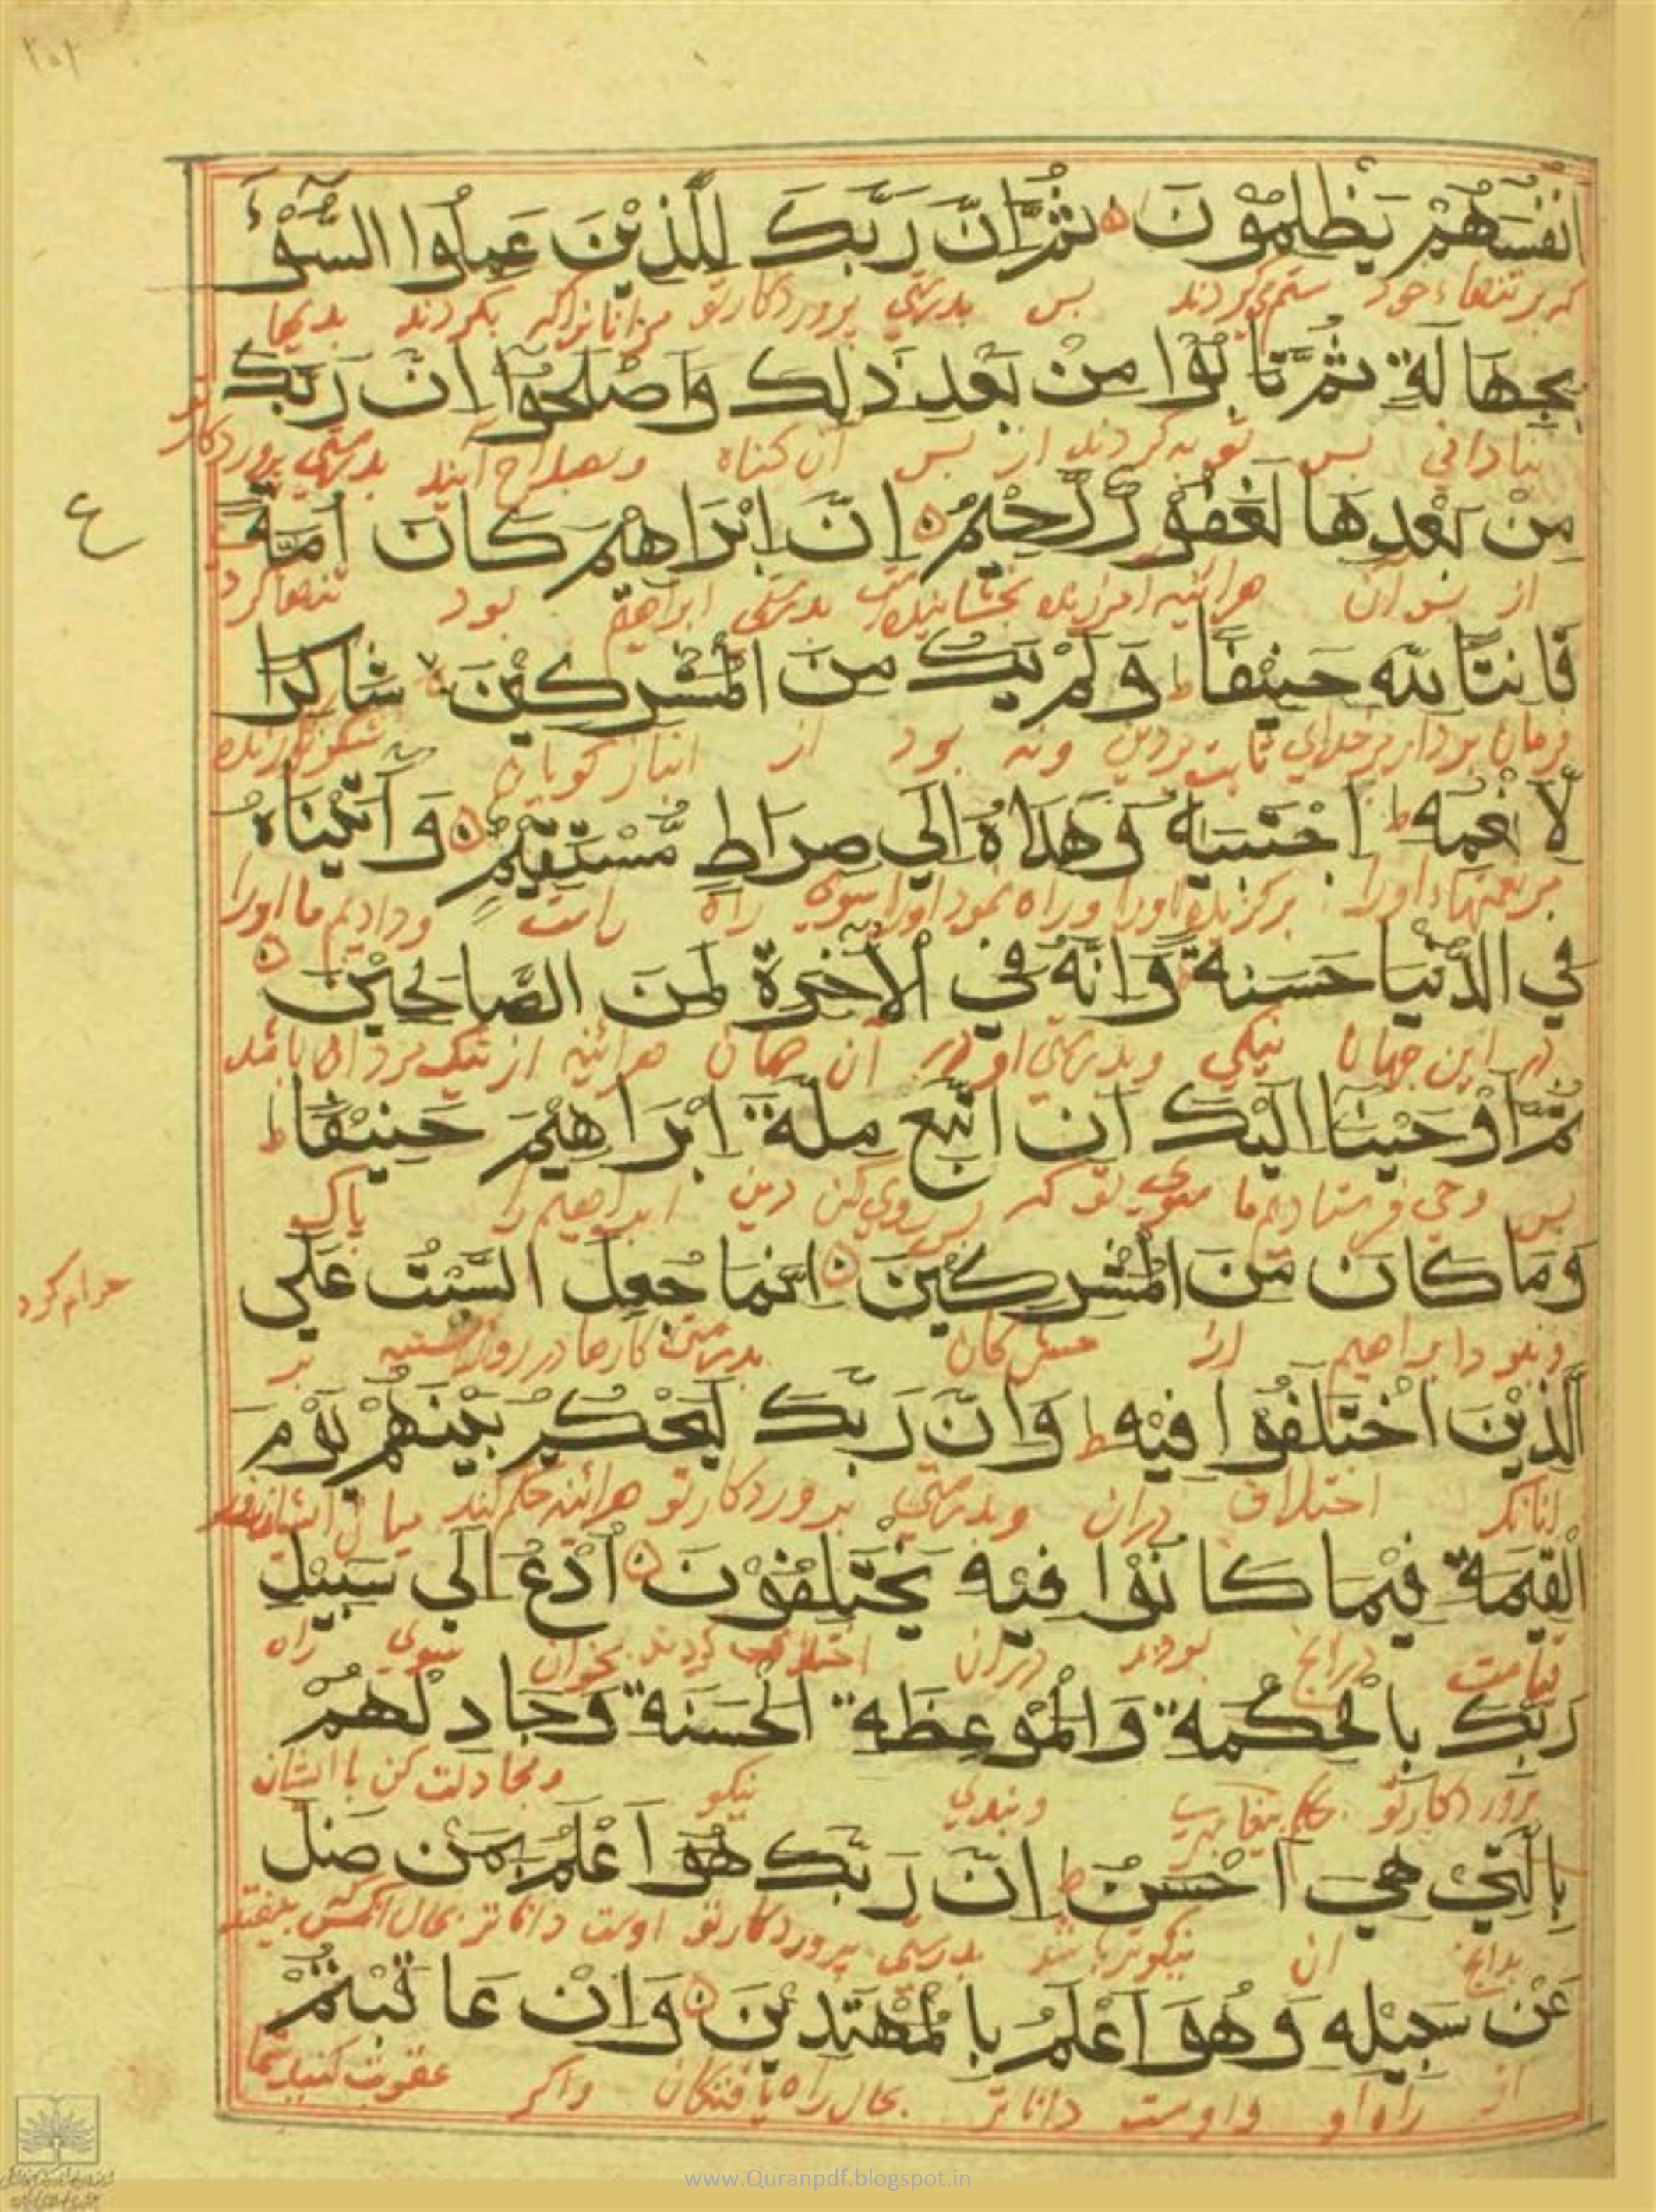 انفسهم يظلمون ثم ان ربك للذين عملوا السوء
که بر تنهاء خود ستم میکردند پس بدرستی پروردگار تو مر انانراکه بکردند بدیها
بجهالة ثم تابوا من بعد ذلك واصلحوا ان ربك
بنادانی پس توبه کردند از پس آن کناه وبصلاح آیند بدرستی پروردکار تو
من بعدها لغفور رحيم ان ابراهيم كان امة
ع
از پس آن هرائینه آمرزنده بخشاینده است بدرستی ابراهیم بود تنها کرد
قانتا لله حنيفا ط ولم يك من المشركين شاكرا
فرمان بردار مر خدای ثابت بر دین ونه بود از انباز کویان شکر کزارنده
لانعمه ط اجتبيه وهداه الي صراط مستقيم وآتيناه
مر نعمتهاء اورا برکزیده اورا وراه نمود اورا سوی راه راست ودادیم ما اورا
في الدنيا حسنة وانه في الآخرة لمن الصالحين
در این جهان نیکی وبدرستی او در آن جهان هرائینه از نیک مردان باشد
ثم اوحينا اليك ان اتبع ملة ابراهيم حنيفا ط
پس وحی فرستادیم ما سوی تو که پس روی کن دین ابراهیم را پاک
وما كان من المشركين انما جعل السبت علي
حرام کرد
ونبود ابراهیم از مشرکان بدرستی کارها در روز شنبه بر
الذين اختلفوا فيه ط وان ربك ليحكم بينهم يوم
انانکه اختلاف دران وبدرستی پروردکار تو هرائینه حکم کند میان ایشان روز
القيمة فيما كانوا فيه يختلفون ادع الي سبيل
قیامت درانچ بودند دران اختلاف کردند بخوان سوی راه
ربك بالحكمة والموعظة الحسنة وجادلهم
پروردکار تو وپندی نیکو ومجادلت کن با ایشان
بالتي هي احسن ط ان ربك هو اعلم بمن ضل
بدانچ ان نیکوتر باشد بدرستی پروردکار تو اوست داناتر بحال انکس که بیفتد
عن سبيله وهو اعلم بالمهتدين وان عاقبتم
از راه او واوست داناتر بحال راه یافتکان واکر عقوبت کنید شما
www.Quranpdf.blogspot.in